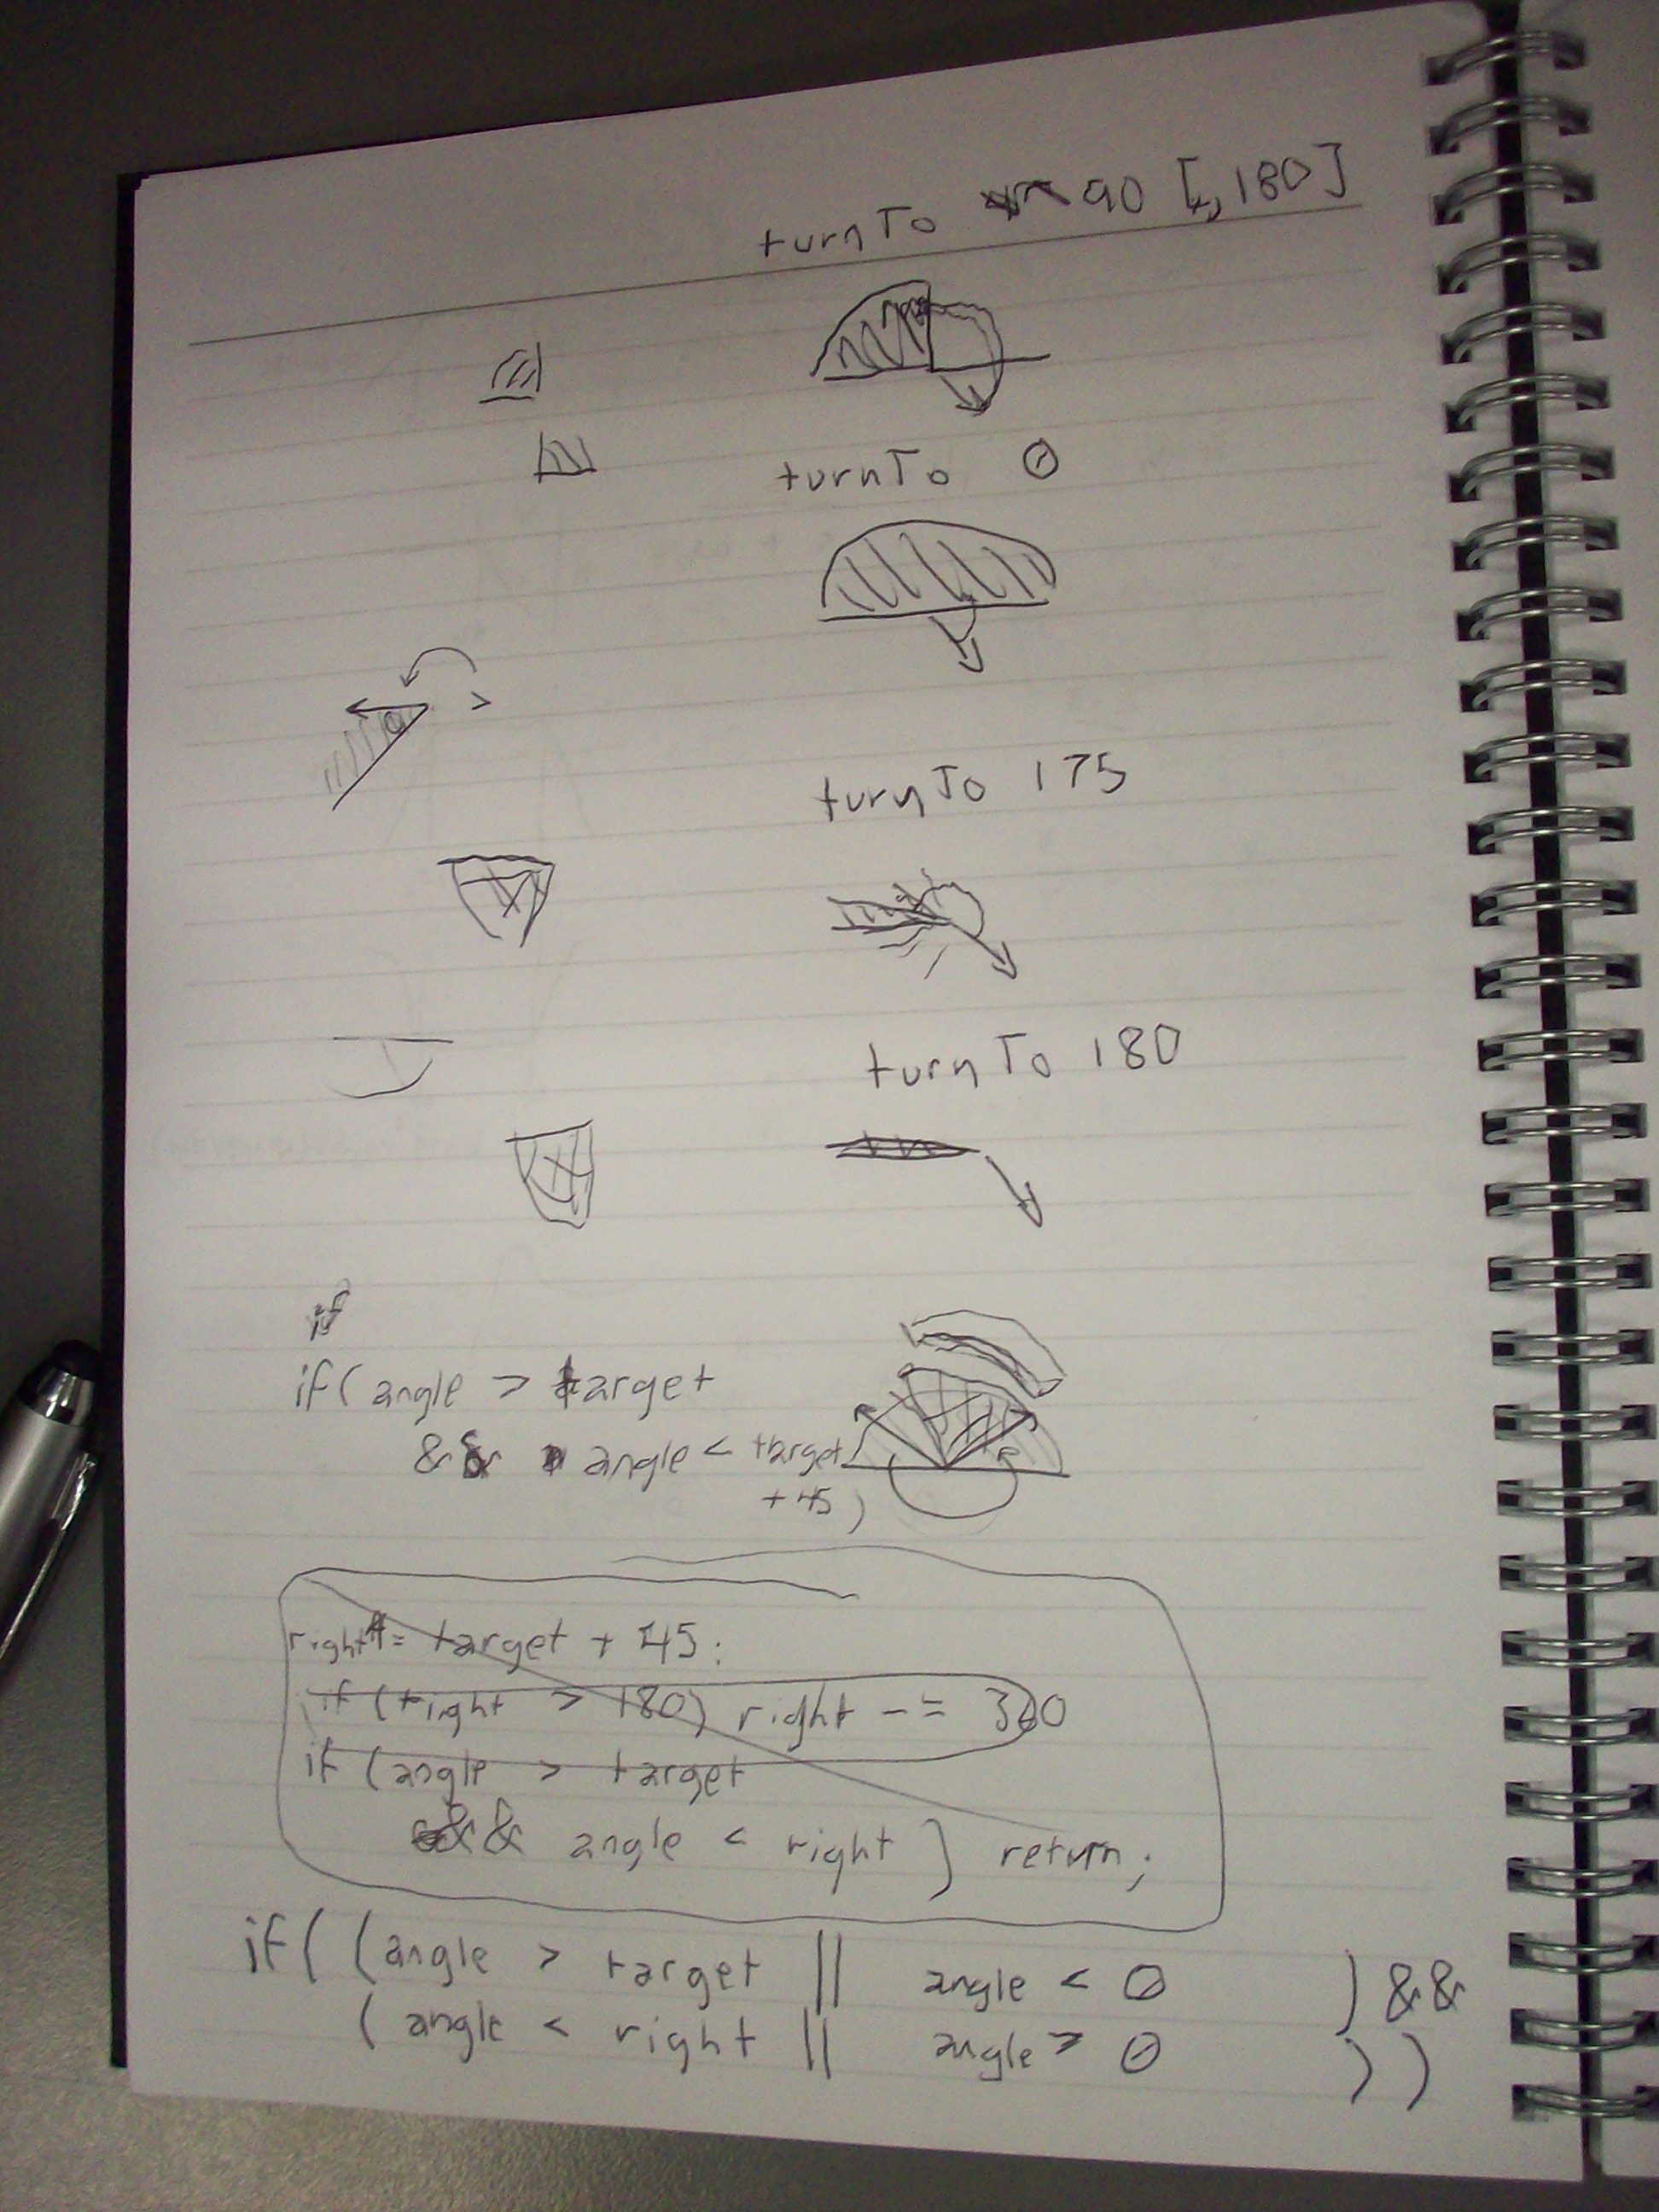 turnTo 90 [,180]
turnTo 0
turnTo 175
turnTo 180
if
if( angle > target
&& angle < target
+45 )
rightA= target + 45;
if (right > 180) right -= 360
if (angle > target
&& angle < right ) return;
if( (angle > target || angle < 0 ) &&
( angle < right || angle > 0 ) )